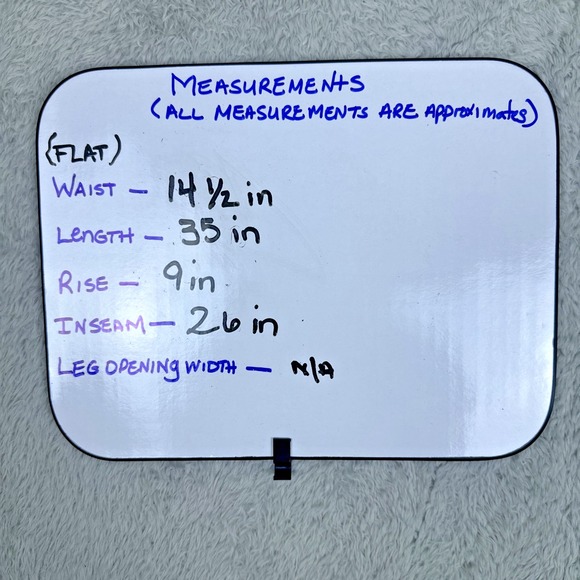 MEASUREMENTS
(ALL MEASUREMENTS ARE Approximates)
(FLAT)
WAIST – 14 1/2 in
LENGTH – 35 in
RISE – 9 in
INSEAM – 26 in
LEG OPENING WIDTH – N/A